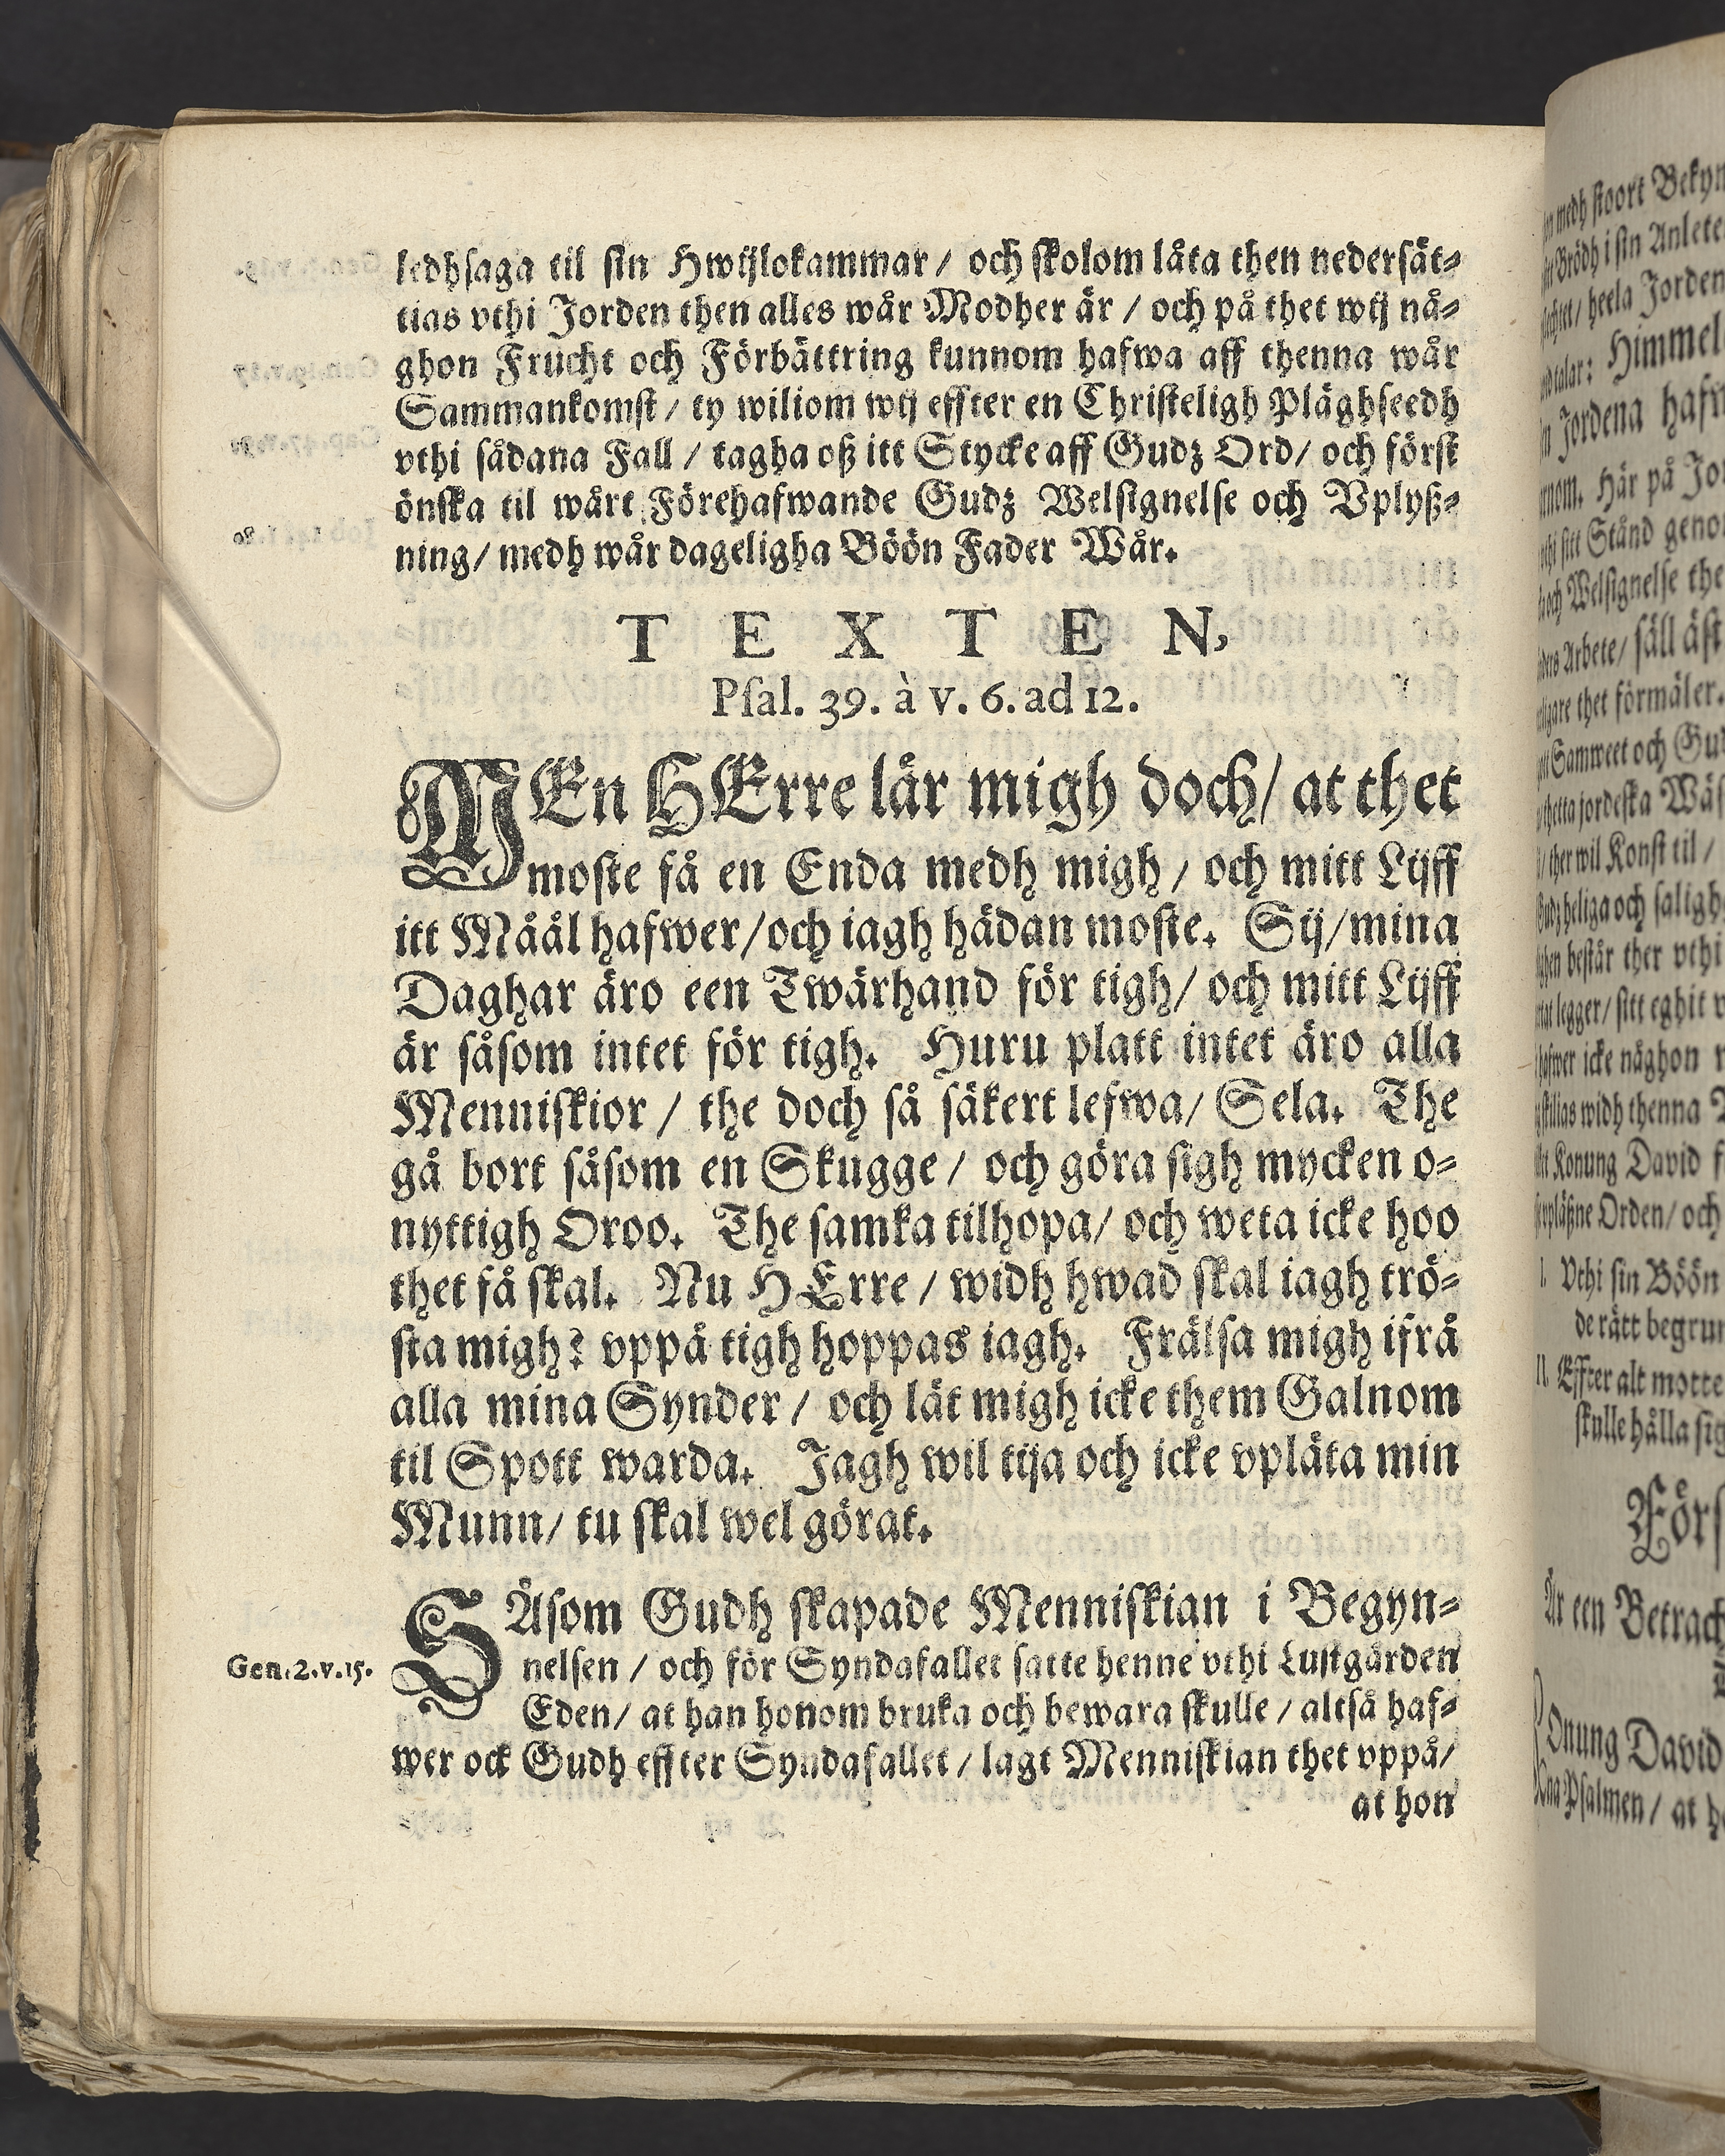 ledhsaga til sin Hwijlokammar / och skolom låta then nedersät-
tias vthi Jorden then alles wår Modher är / och på thet wij nå-
ghon Frucht och Förbättring kunnom hafwa aff thenna wår
Sammankomst / ty wiliom wij effter en Christeligh Pläghseedh
vthi sådana Fall / tagha oß itt Stycke aff Gudz Ord / och först
önska til wårt Förehafwande Gudz Welsignelse och Vplyß-
ning / medh wår dageligha Böön Fader Wår.
TEXTEN,
Psal. 39. à v. 6. ad 12.
MEn HErre lär migh doch / at thet
moste få en Enda medh migh / och mitt Lijff
itt Måål hafwer / och iagh hädan moste. Sij / mina
Daghar äro een Twärhand för tigh / och mitt Lijff
är såsom intet för tigh. Huru platt intet äro alla
Menniskior / the doch så säkert lefwa / Sela. The
gå bort såsom en Skugge / och göra sigh mycken o-
nyttigh Oroo. The samka tilhopa / och weta icke hoo
thet få skal. Nu HErre / widh hwad skal iagh trö-
sta migh? vppå tigh hoppas iagh. Frälsa migh ifrå
alla mina Synder / och låt migh icke them Galnom
til Spott warda. Jagh wil tija och icke vplåta min
Munn / tu skal wel görat.
SÅsom Gudh skapade Menniskian i Begyn-
Gen. 2. v. 15.
nelsen / och för Syndafallet satte henne vthi Lustgården
Eden / at han honom bruka och bewara skulle / altså haf-
wer ock Gudh effter Syndafallet / lagt Menniskian thet vppå /
at hon
medh stoort
Brödh i sin Anlete
heela Jorden
talar: Himmel
Jordena
Här på
sitt Stånd
och Welsignelse
Arbete / säll äst
thet förmäler.
Samweet och
thetta jordeska
ther wil Konst til /
heliga och saligh
består ther vthi
legger / sitt eghit
icke någhon
widh thenna
Konung David
Orden / och
I. Vthi sin Böön
de rätt
II. Effter alt motte
skulle hålla
Är een
Onung David
Psalmen / at